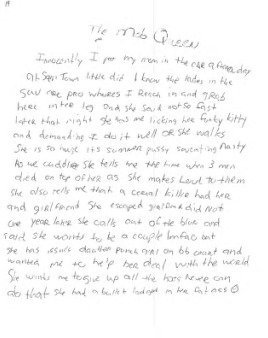 The Mob Queen
Innocently I put my man in the car a Fareday
at Sepi Town little did I know the ladies in the
suv are pro whores I Reach in and grab
here inter leg and she said not so fast
later that night she has me licking her funky kitty
and demanding I do it well or she walks
She is so huge its summer pussy sweating nasty
As we cuddle she tells me the time when 3 men
died on top of her as she makes Love to them
She also tells me that a cereal killer had her
and girlfriend she escaped girlfriend did not
one year later she calls out of the blue and
said she wants to be a couple lmfao but
she has issues another punch girl on bb court and
wanted me to help her deal with the world
She wants me to give up all the hoes never can
do that she had a bullet lodged in her fat ass